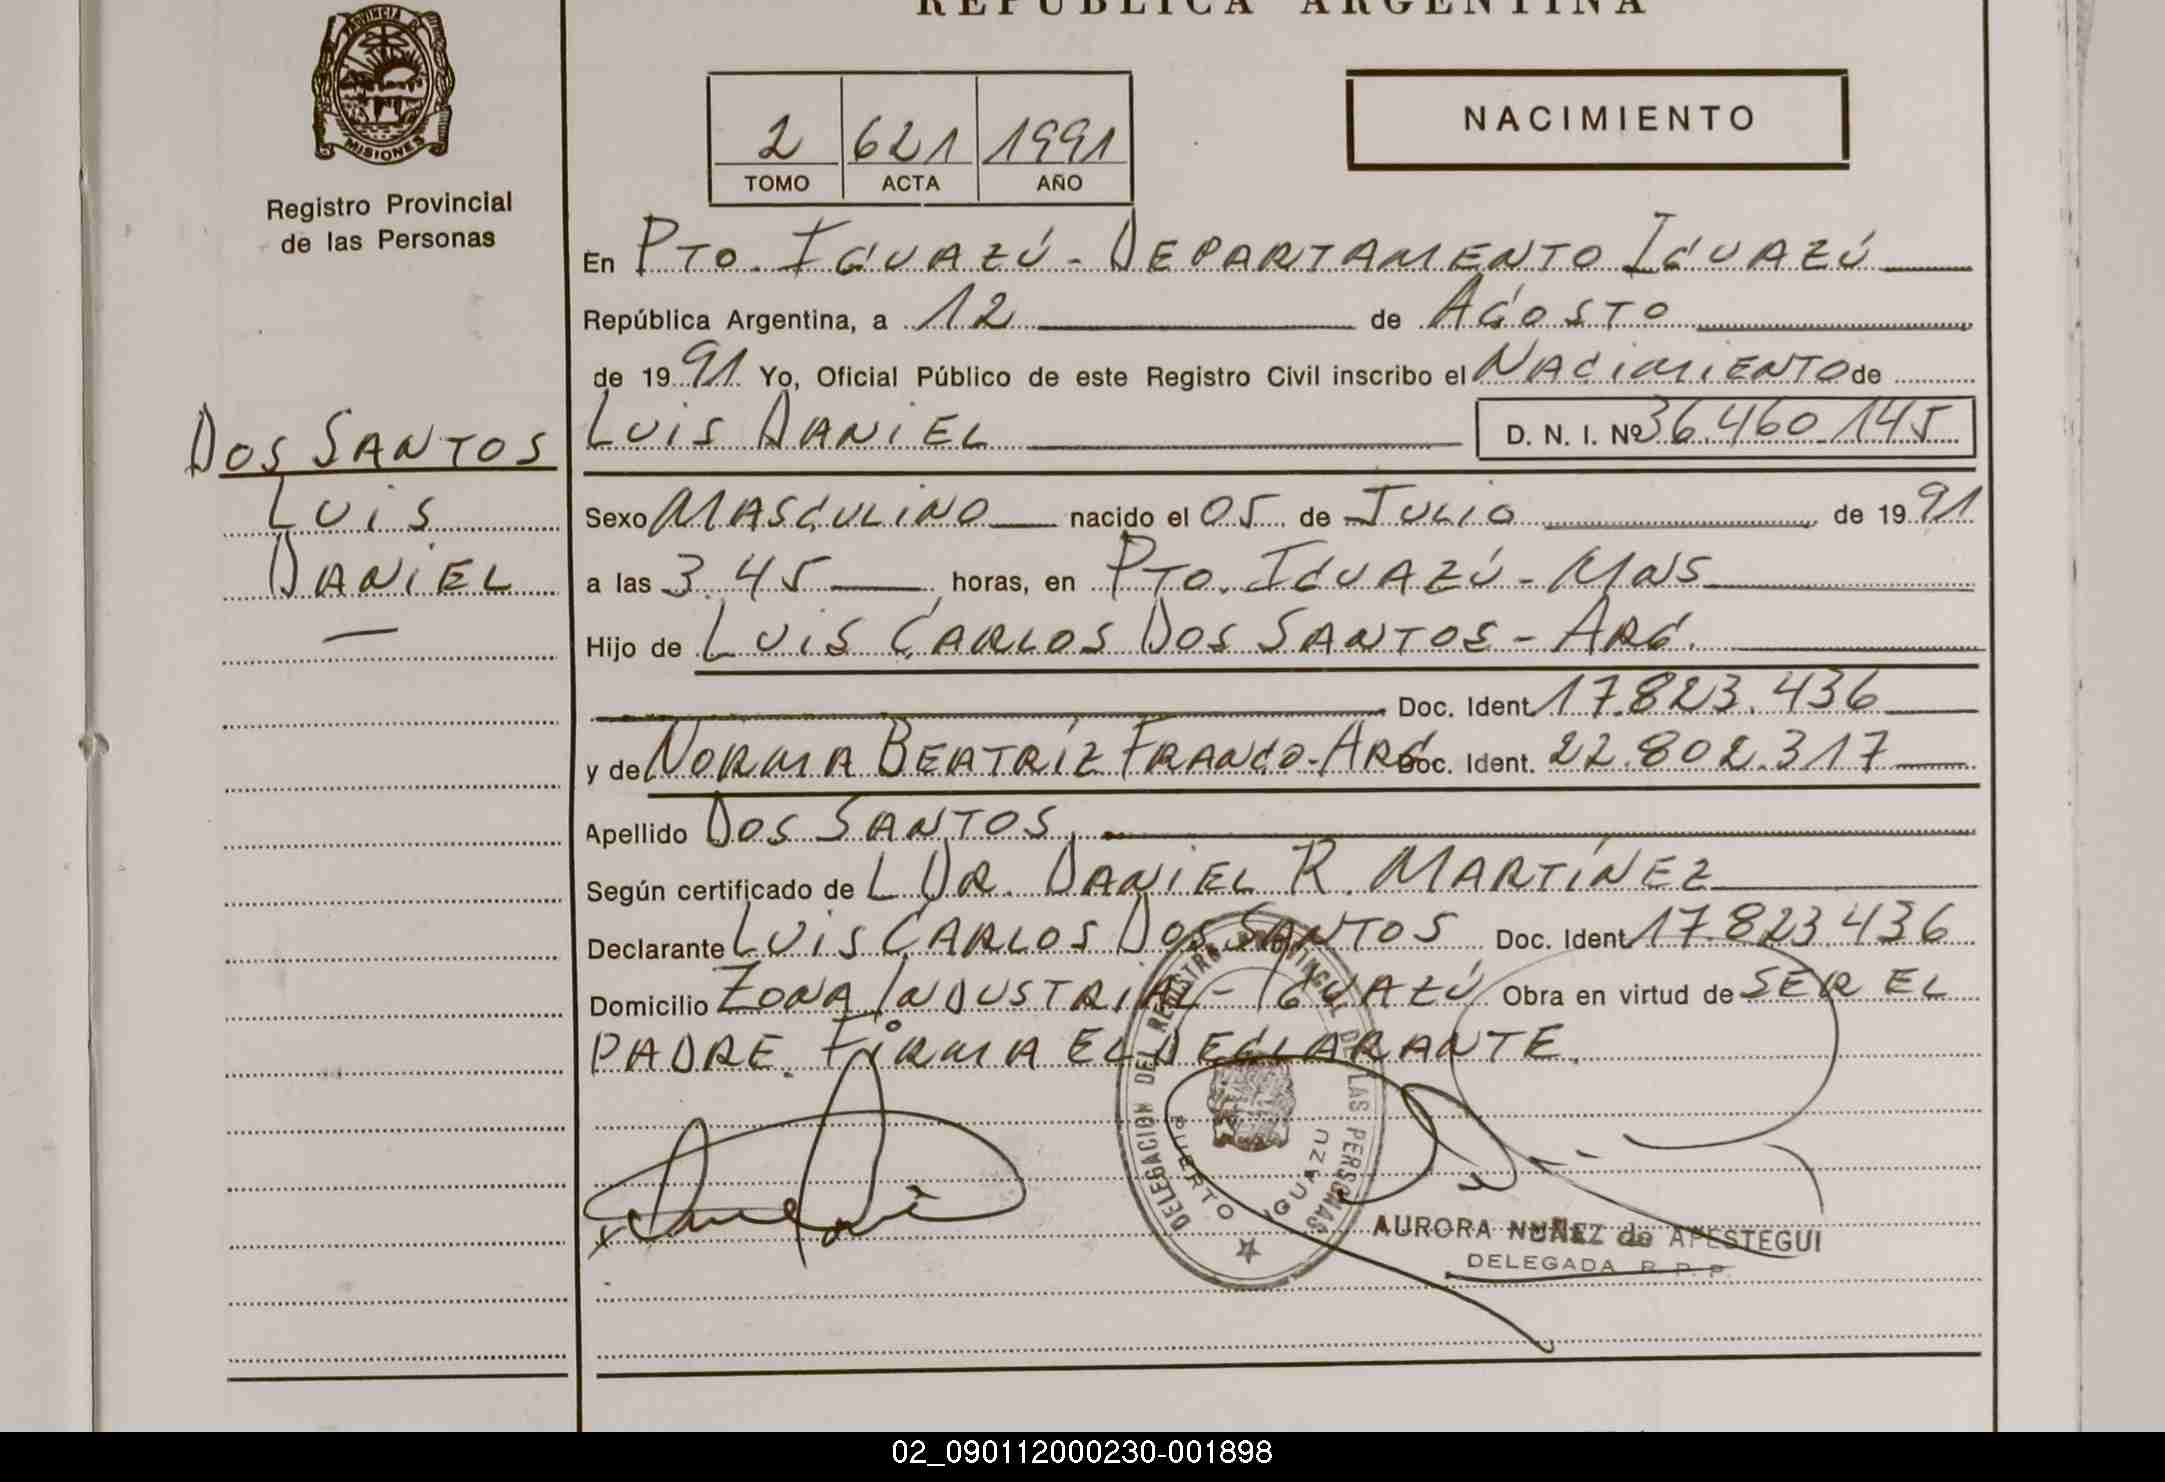 REPUBLICA ARGENTINA
PROVINCIA DE
MISIONES
Registro Provincial
de las Personas
2 621 1991
TOMO ACTA AÑO
NACIMIENTO
En PTO. IGUAZÚ - DEPARTAMENTO IGUAZÚ
República Argentina, a 12 de AGOSTO
de 1991 Yo, Oficial Público de este Registro Civil inscribo el NACIMIENTO de
LUIS DANIEL D. N. I. Nº 36.460.145
DOS SANTOS
LUIS
DANIEL
Sexo MASCULINO nacido el 05 de JULIO de 1991
a las 3.45 horas, en PTO. IGUAZÚ - MNS
Hijo de LUIS CARLOS DOS SANTOS - ARG.
Doc. Ident. 17.823.436
y de NORMA BEATRÍZ FRANCO - ARG Doc. Ident. 22.802.317
Apellido DOS SANTOS
Según certificado de L DR. DANIEL R. MARTÍNEZ
Declarante LUIS CARLOS DOS SANTOS Doc. Ident. 17.823.436
Domicilio ZONA INDUSTRIAL - IGUAZÚ Obra en virtud de SER EL
PADRE. FIRMA EL DECLARANTE.
DELEGACION DEL REGISTRO PROVINCIAL DE LAS PERSONAS
PUERTO IGUAZU
AURORA NUÑEZ de APESTEGUI
DELEGADA R. P. P.
02_090112000230-001898